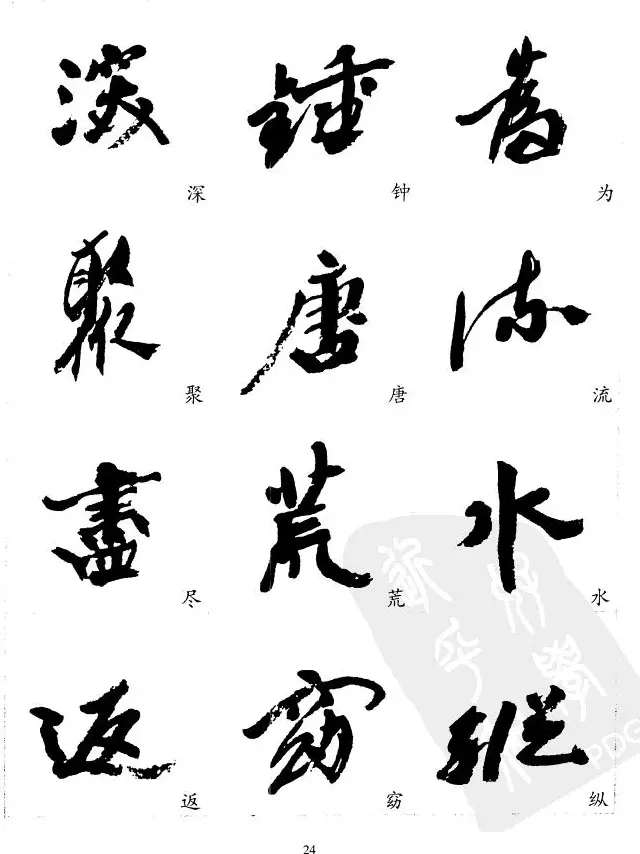 為
为
流
流
水
水
縱
纵
鍾
钟
唐
唐
荒
荒
窈
窈
深
深
聚
聚
盡
尽
返
返
PDG
24